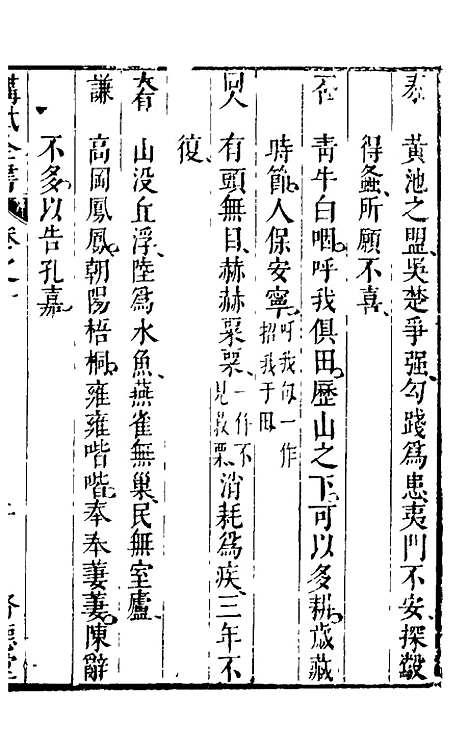 泰　黃池之盟吳楚爭强勾踐爲患夷門不安探鷇
得螽所願不喜
否　青牛白咽呼我俱田歷山之下可以多耕歲藏
時節人保安寧呼我句一作招我于田
同人　有頭無目赫赫粟粟一作不見菽粟消耗爲疾三年不
復
大有　山没丘浮陸爲水魚燕雀無巢民無室廬
謙　高岡鳳凰朝陽梧桐雍雍喈喈奉奉萋萋陳辭
不多以告孔嘉